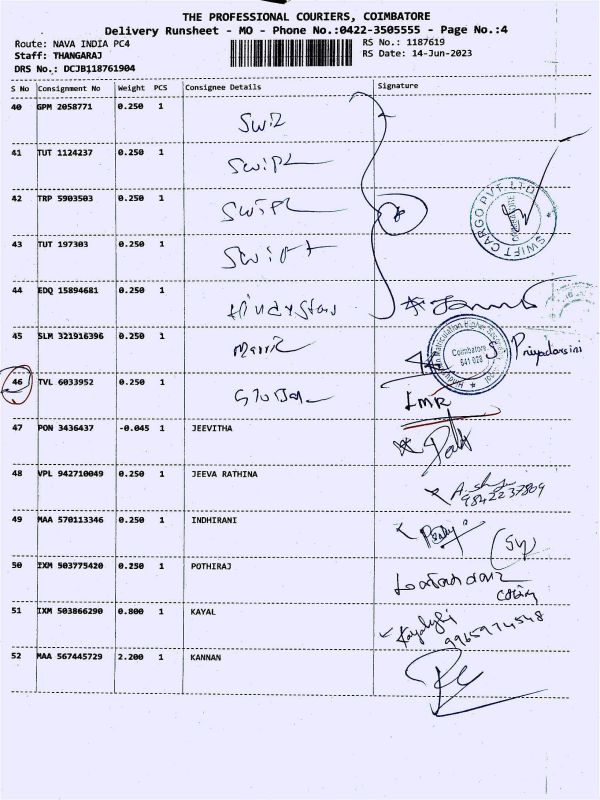 THE PROFESSIONAL COURIERS, COIMBATORE
Delivery Runsheet - MO - Phone No.:0422-3505555 - Page No.:4
Route: NAVA INDIA PC4
RS No.: 1187619
Staff: THANGARAJ
RS Date: 14-Jun-2023
DRS No.: DCJB118761904
S No Consignment No Weight PCS Consignee Details Signature
40 GPM 2058771 0.250 1
41 TUT 1124237 0.250 1
42 TRP 5903503 0.250 1
SWIFT CARGO PVT. LTD
COIMBATORE
43 TUT 197303 0.250 1 Swift
44 EDQ 15894681 0.250 1 Hindustan
45 SLM 321916396 0.250 1
Matriculation Higher Secondary
Coimbatore
641 028
S Priyadarsini
46 TVL 6033952 0.250 1 Global
LMR
47 PON 3436437 -0.045 1 JEEVITHA
48 VPL 942710049 0.250 1 JEEVA RATHINA
9842237809
49 MAA 570113346 0.250 1 INDHIRANI
50 IXM 503775420 0.250 1 POTHIRAJ
51 IXM 503866290 0.800 1 KAYAL
9965974548
52 MAA 567445729 2.200 1 KANNAN